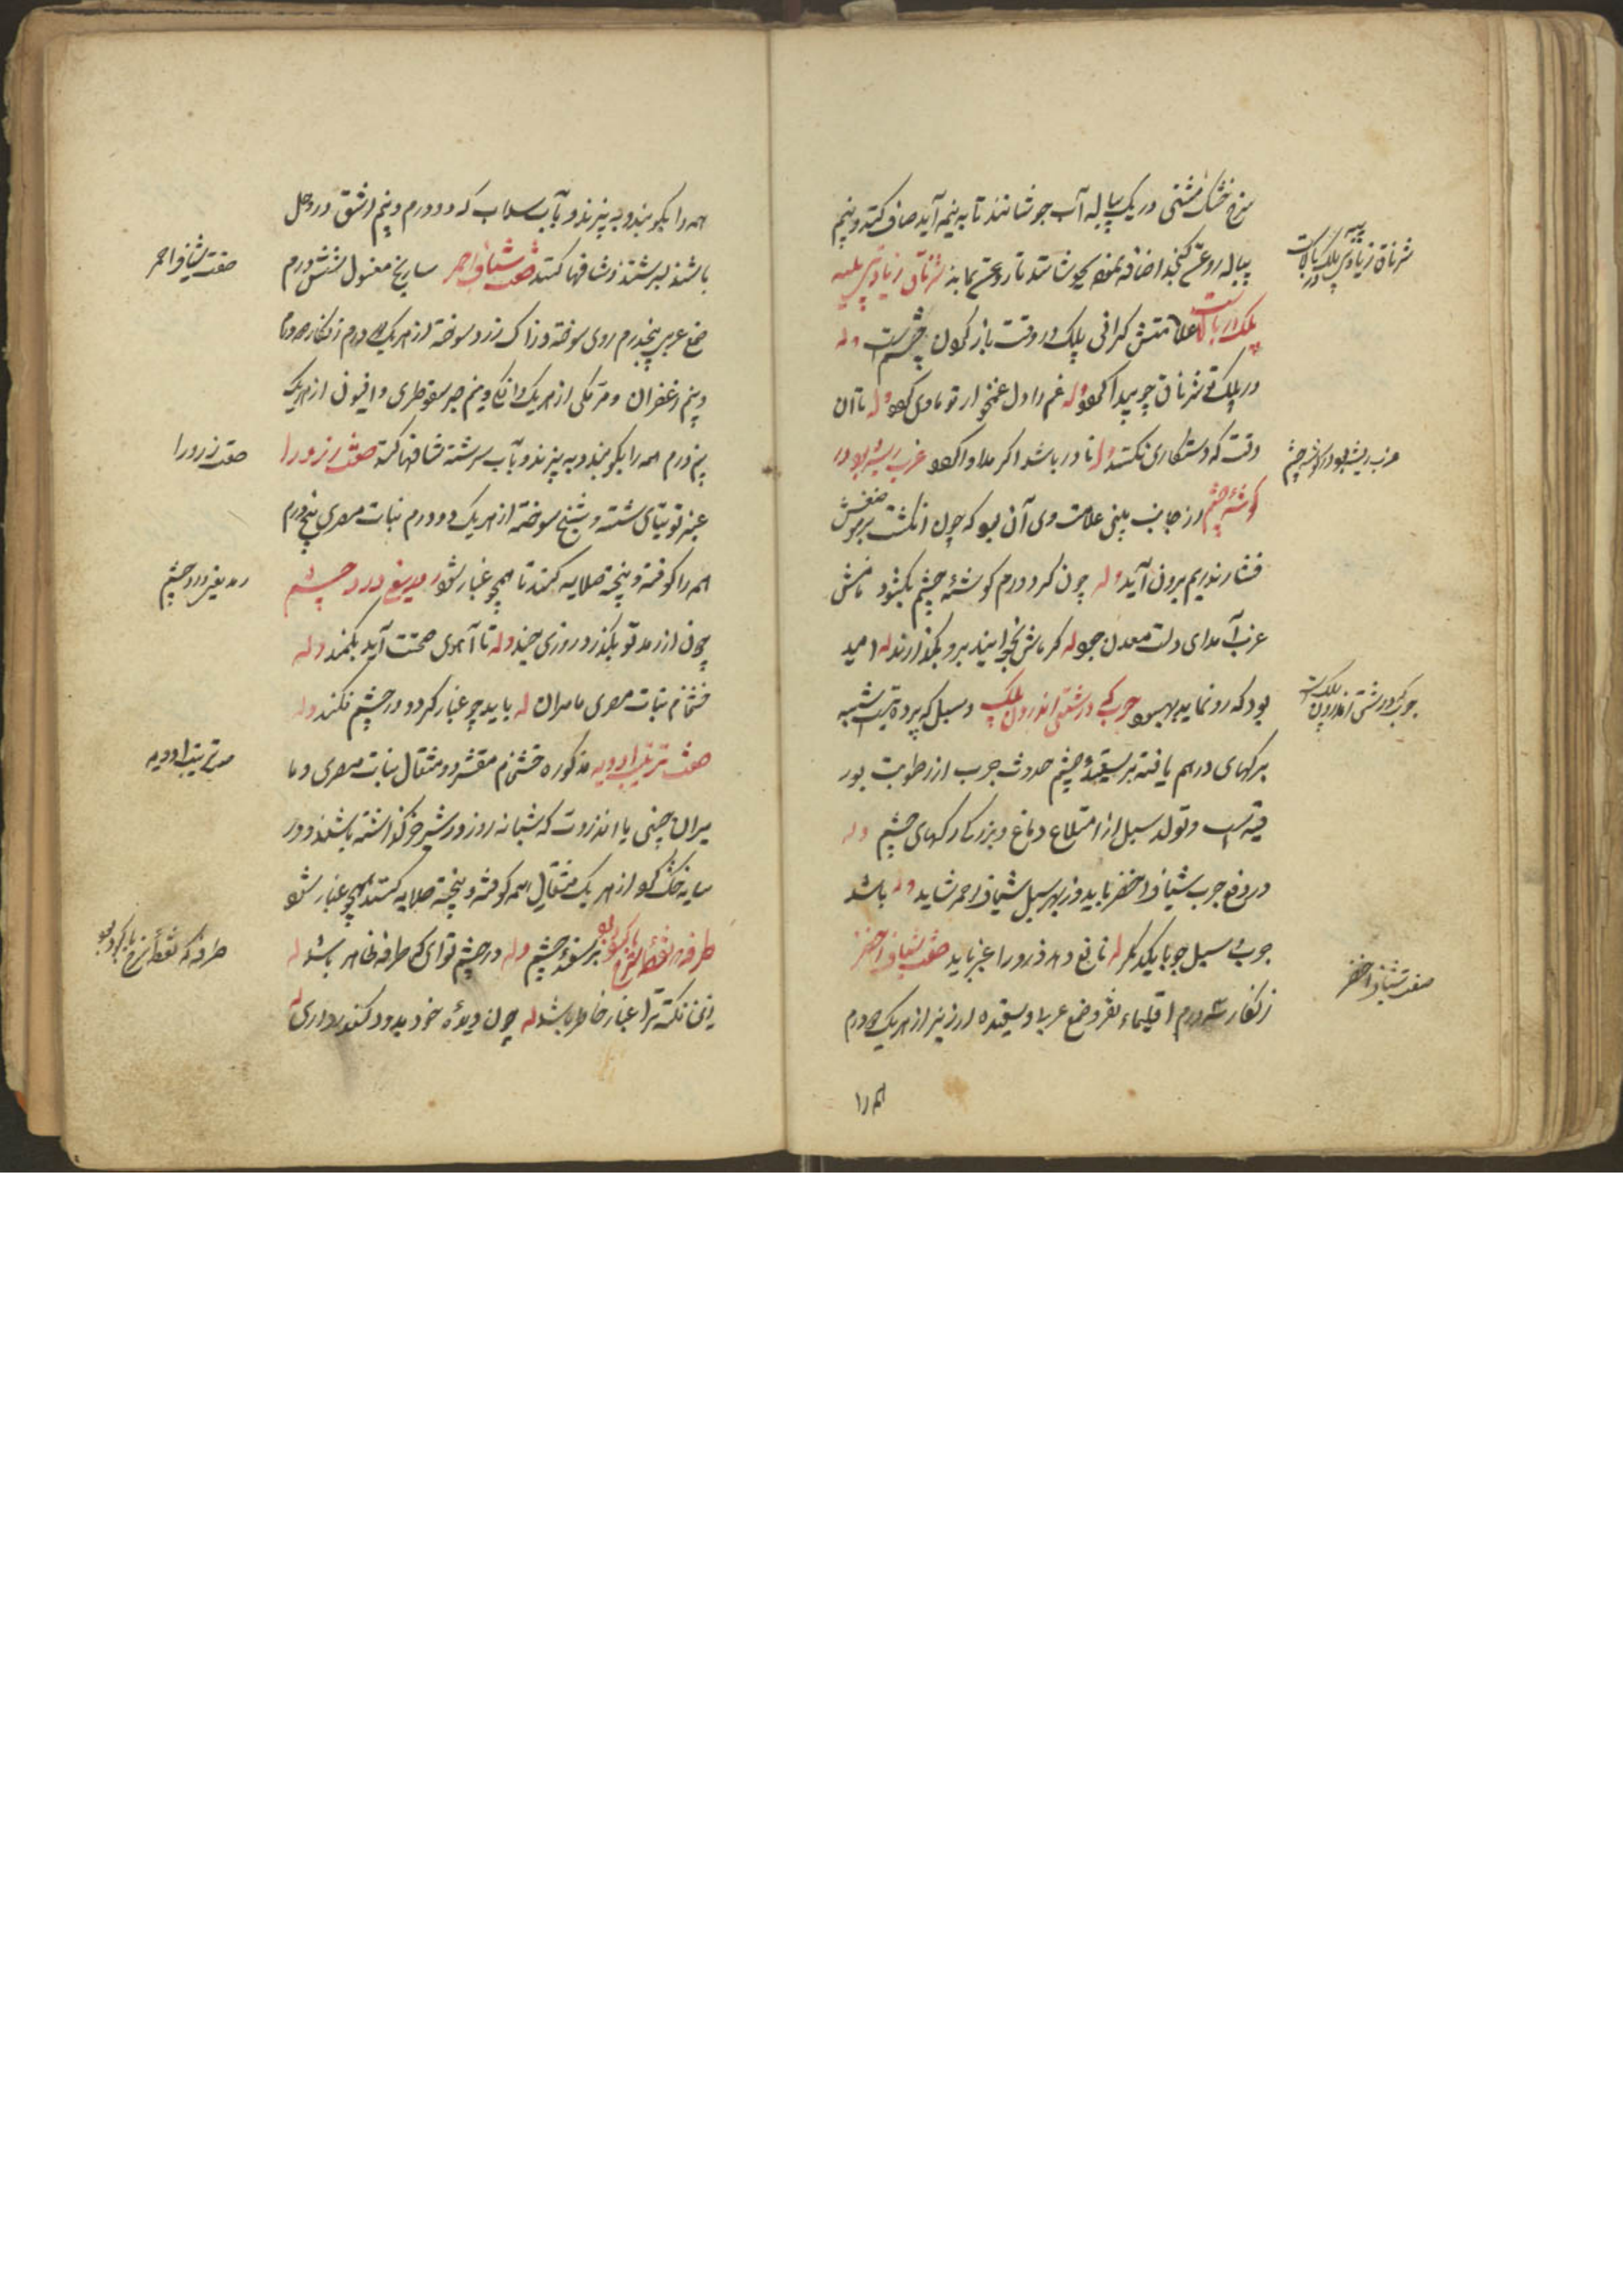 سرخ خشک مشتی در یک پیاله آب جوشانند تا به نیمه آید صاف کنند و نیم
پیاله روغن کنجد اضافه نموده بجوشانند تا روغن بماند شرناق زیادتی پیه
پلک بالاست علامتش گرانی پلک در وقت باز کردن چشم است وله
در پلک تو شرناق چو پیدا گردد وله غم را دل غمخوار تو ماوی گردد وله تا آن
وقت که دستکاری نکنند وله نادر باشد اگر مداوا گردد غرب ریشه بود در
گوشه چشم از جانب بینی علامت وی آن بود که چون انگشت بر موضعش
فشارند ریم برون آید وله چون گرد ورم گوشه چشم بگشود ماش
غرب آمد ای دولت معدن جود له گر ماش بخایند برو بگذارند له امید
بود که رو نماید بهبود جرب که درشتی اندرون پلک و سبل که پرده ایست شبیه
برگهای درهم یافته بر سفیده چشم حدوث جرب از رطوبت بور
قیه است و تولد سبل از امتلاء دماغ و بزرگ رگهای چشم وله
در دفع جرب شیاف اخضر باید وز بهر سبل شیاف احمر شاید وله باشد
جرب و سبل چو با یکدیگر له نافع دهد ذرورا غبر باید صفت شیاف اخضر
زنگار سه درم اقلیمیاء نقره و صمغ عربی و سفیده ارزیز از هر یک دو درم
همه را
شرناق زیادتی پیه پلک بالاست
غرب ریشه بود در گوشه چشم
جرب که درشتی اندرون پلک است
صفت شیاف اخضر
همه را بکوبند و به پزند و بآب سداب که دو درم و نیم اشق در وحل
باشند بسرشند و شافها کنند صفت شیاف احمر شاریخ مغسول شش درم
صمغ عربی پنجدرم روی سوخته و زاک زرد سوخته از هر یک دو درم زنگار دو درم
و نیم زعفران و مر مکی از هر یک دانگ و نیم صبر سقوطری و افیون از هر یک
نیم درم همه را بکوبند و به پزند و بآب سرشته شافها کنند صفت ذرورا
غبر توتیای شسته و شنج سوخته از هر یک دو درم نبات مصری پنج درم
همه را کوفته و پخته صلایه کنند تا همچو غبار شود رمد یعنی درد چشم
چون از رمد تو بگذرد روزی چند وله تا آهوی صحت آید بکمند وله
چشخام نبات مصری مامیران له باید چو غبار کرد و در چشم فکند وله
صفت ترتیب ادویه مذکوره چشخام مقشر دو مثقال نبات مصری و ما
میران چینی با انزروت که شبانه روز در شیر خر گذاشته باشند و در
سایه خشک کرده از هر یک مثقال همه کوفته و پخته صلایه کنند همچو غبار شود
طرفه که نقطه سرخ یا کبود بود بر سفیده چشم وله در چشم تو ای که طرفه ظاهر باشد له
زین نکته ترا غبار خاطر باشد له چون دیده خود بدود کندر داری له
صفت شیاف احمر
صفت ذرورا
رمد یعنی درد چشم
صفت ترتیب ادویه
طرفه که نقطه سرخ یا کبود بود